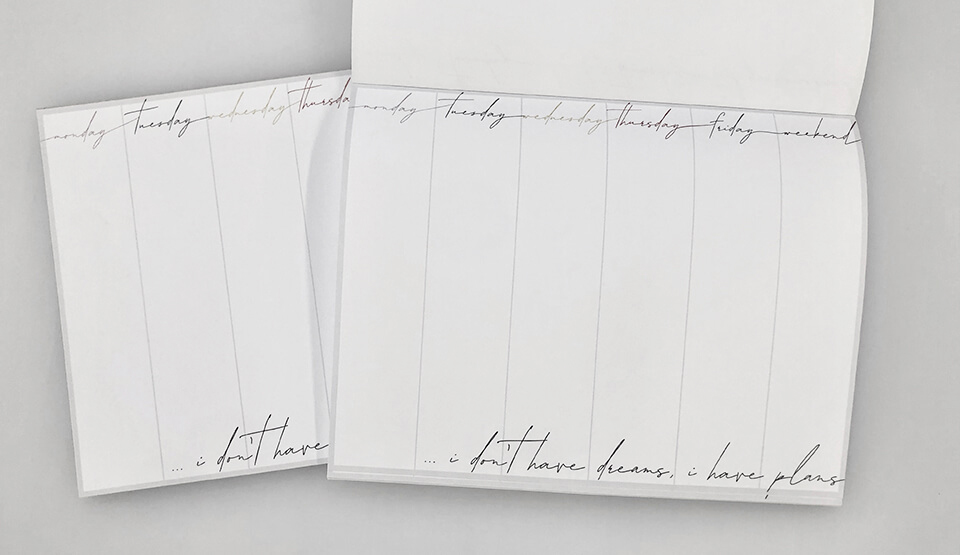 monday tuesday wednesday thursda
... i don't have
monday tuesday wednesday thursday friday weekend
... i don't have dreams, i have plans